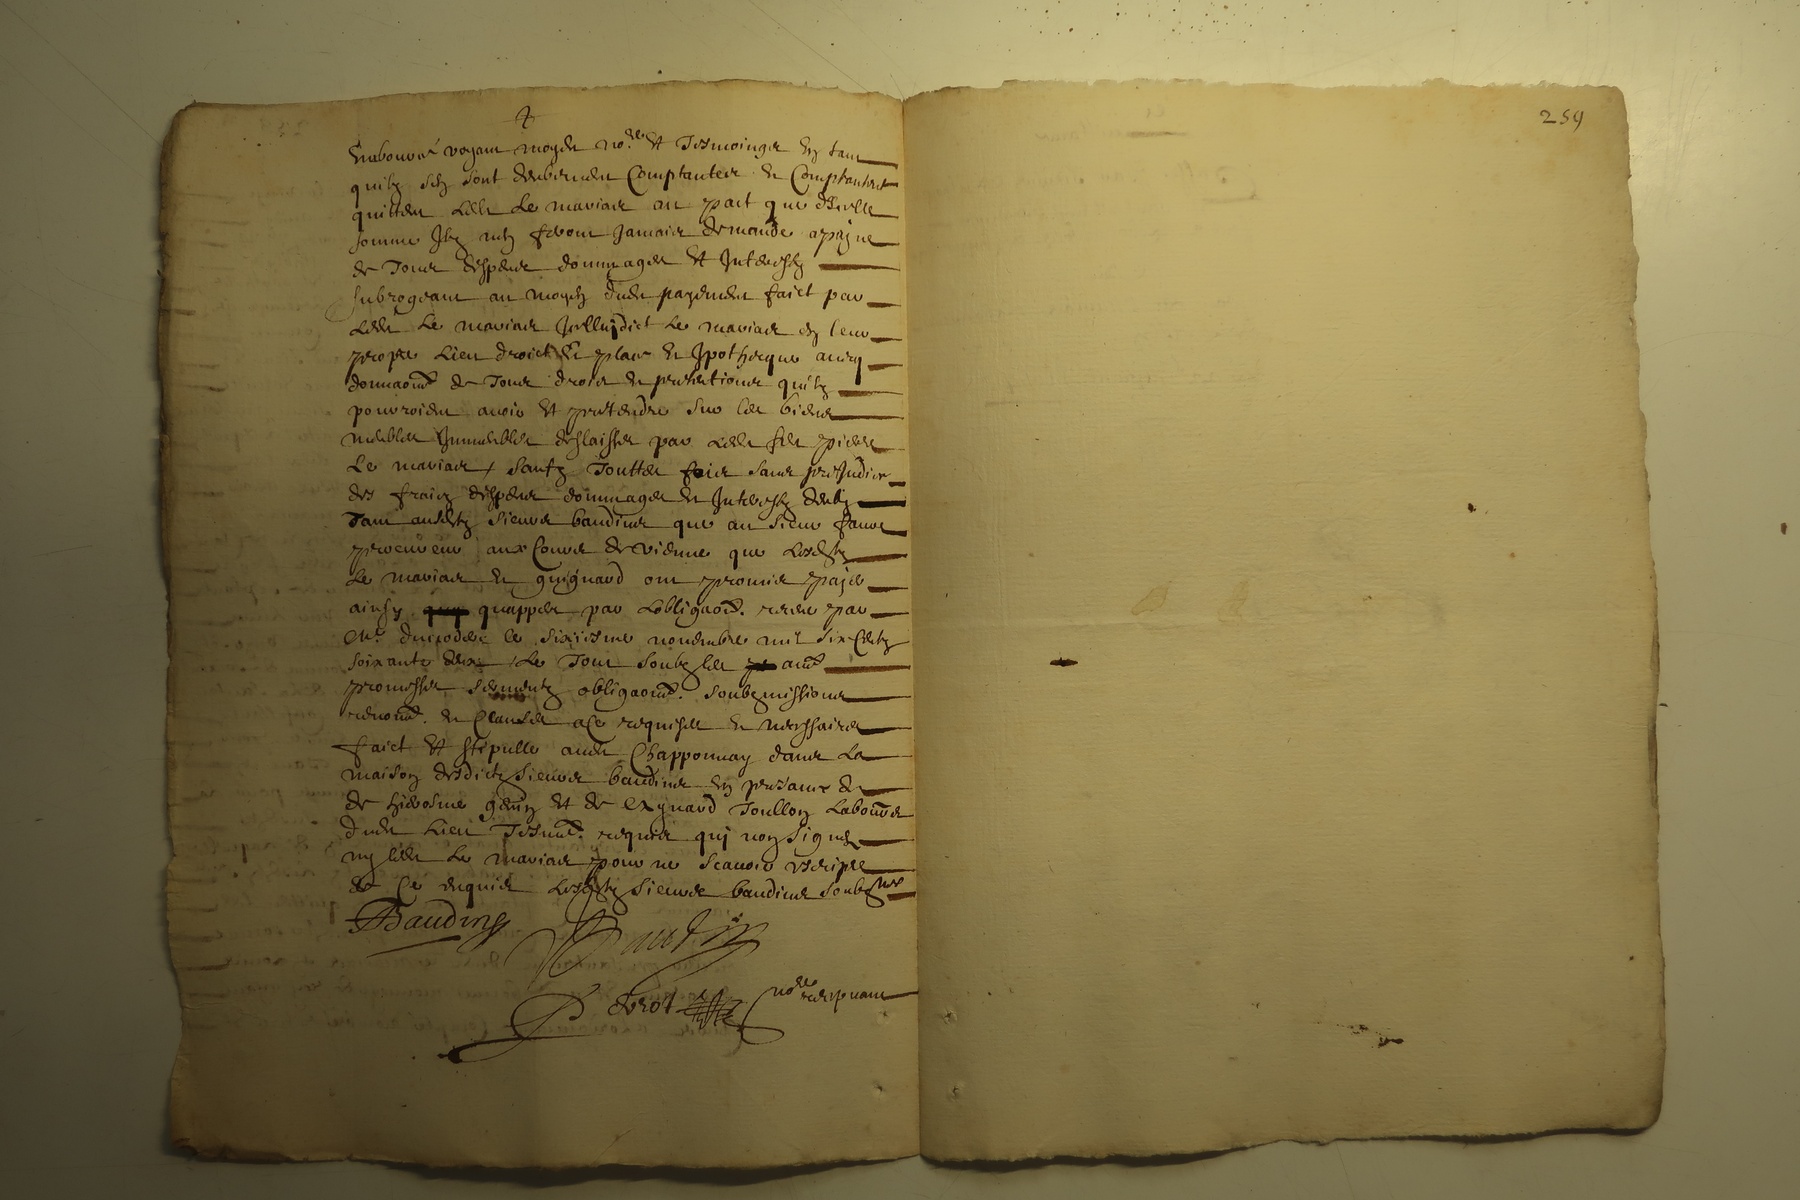 4
Embourcé voyant moyed no.re et Tesmoingz En tant
quilz sen sont deuhement Comptantez et Comptantent
quittent Led. Le mariat au pact que dIcelle
somme Ilz nen feront Jamais demande a payne
de Tous despens dommages et Interestz
subrogeant au moyen dud. payement faict par
Led. Le mariat Icelluydict Le mariat en leur
propre Lieu droict Et place et Ipothecque avecq
de Tous droictz et pretentions quilz
pourroient avoir et pretendre sur les biens
meubles Immeubles deslaisses par Led. feu pierre
Le mariat / sauf Touttes fois sans preJudice
des fraiz despens dommages et Interestz deubz
Tant ausdtz sieurs baudins que au sieur faure
procureur aux Cours de vienne que Lesdtz
Le mariat et guignard ont promis payer
ainsy quapper par Lobligaon. receue par
Me. le sixiesme novembre mil six Centz
soixante Le Tout soubz les aud.
promesses serments obligaons. soubzmissions
renons. et Clauses a Ce requises et necessaires
faict et stipullé aud. Chapponnay dans La
maison desdictz sieurs baudins En presance de
de hierosme et de Toullon Labours
dud. Lieu Tesmns. requis qui nont signé
ny led. Le mariat pour ne scavoir rescripre
de Ce enquis Lesdtz sieurs baudins soubznes
Baudin
Baudin
no.re recepvant
259